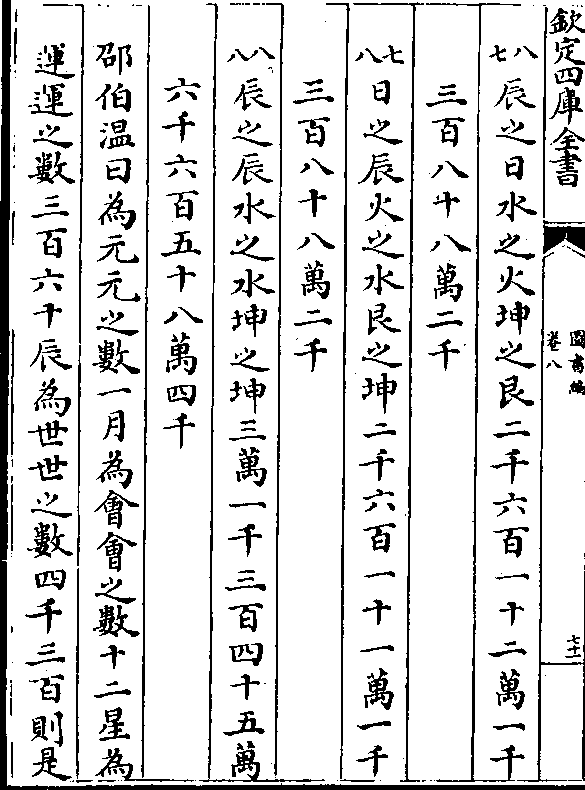 欽定四庫全書
圖書編
卷八
七十一
七八 辰之日水之火坤之艮二千六百一十二萬一千
三百八十八萬二千
八七 日之辰火之水艮之坤二千六百一十一萬一千
三百八十八萬二千
八八 辰之辰水之水坤之坤三萬一千三百四十五萬
六千六百五十八萬四千
邵伯温曰為元元之數一月為會會之數十二星為
運運之數三百六十辰為世世之數四千三百則是